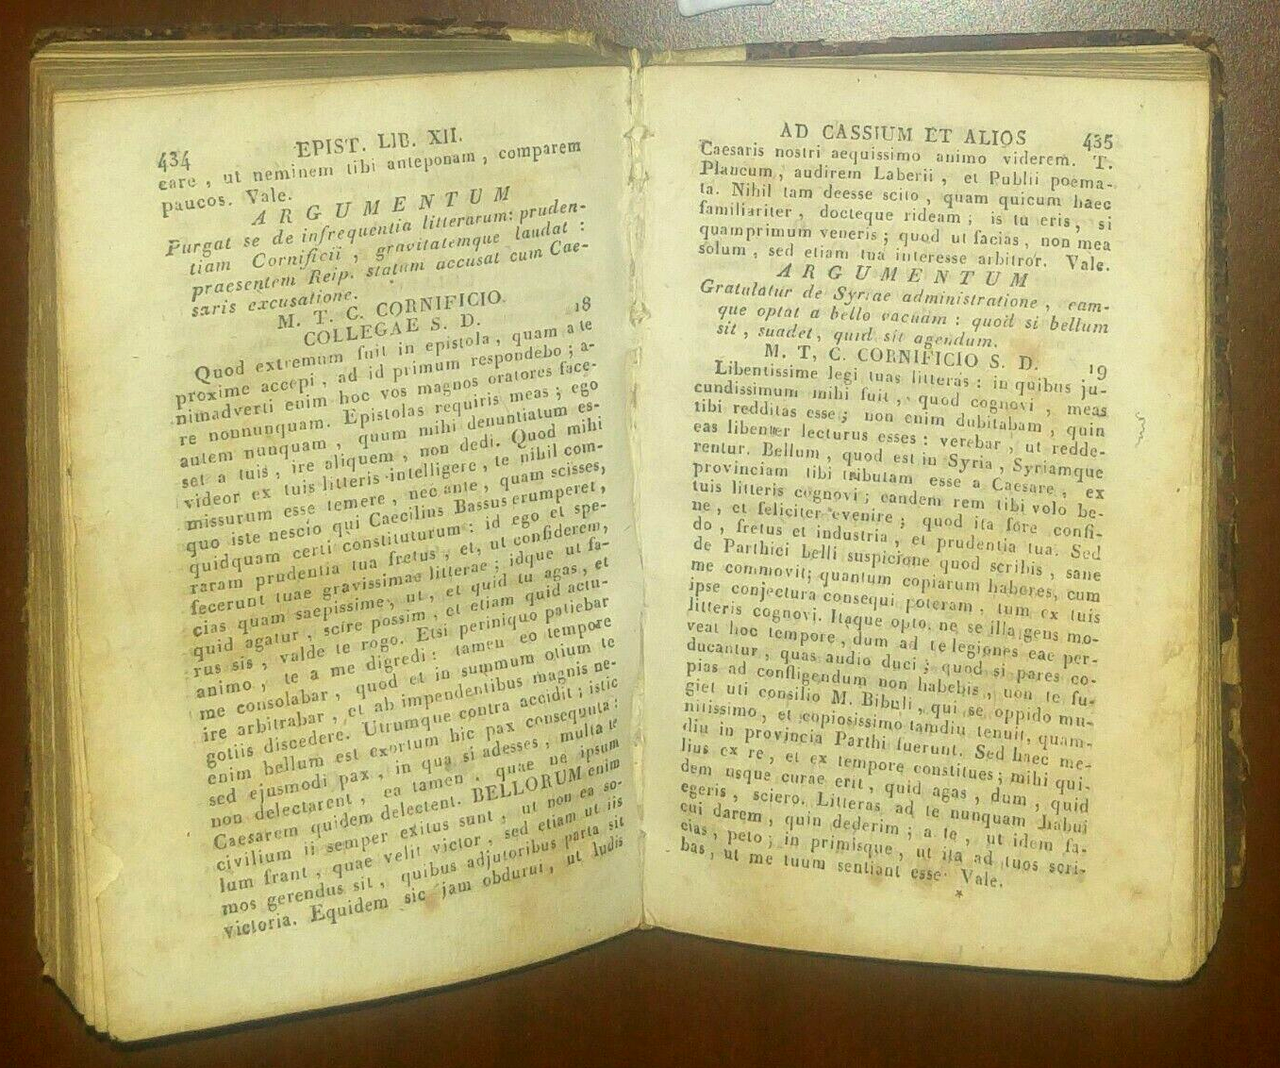 434
EPIST. LIB. XII.
care , ut neminem tibi anteponam , comparem
paucos. Vale.
ARGUMENTUM
Purgat se de infrequentia litterarum: pruden-
tiam Cornificii , gravitatemque laudat :
praesentem Reip. statum accusat cum Cae-
saris excusatione.
M. T. C. CORNIFICIO
COLLEGAE S. D.
18
Quod extremum fuit in epistola , quam a te
proxime accepi , ad id primum respondebo ; a-
nimadverti enim hoc vos magnos oratores face-
re nonnunquam. Epistolas requiris meas ; ego
autem nunquam , quum mihi denuntiatum es-
set a tuis , ire aliquem , non dedi. Quod mihi
videor ex tuis litteris intelligere , te nihil com-
missurum esse temere , nec ante , quam scisses,
quo iste nescio qui Caecilius Bassus erumperet,
quidquam certi constituturum : id ego et spe-
raram prudentia tua fretus , et, ut confiderem,
fecerunt tuae gravissimae litterae ; idque ut fa-
cias quam saepissime, ut , et quid tu agas , et
quid agatur , scire possim , et etiam quid actu-
rus sis , valde te rogo. Etsi periniquo patiebar
animo , te a me digredi : tamen eo tempore
me consolabar , quod et in summum otium te
ire arbitrabar , et ab impendentibus magnis ne-
gotiis discedere. Utrumque contra accidit ; istic
enim bellum est exortum hic pax consequuta :
sed ejusmodi pax , in qua si adesses , multa te
non delectarent , ea tamen , quae ne ipsum
Caesarem quidem delectent. BELLORUM enim
civilium ii semper exitus sunt , ut non ea so-
lum fiant , quae velit victor , sed etiam ut iis
mos gerendus sit , quibus adjutoribus parta sit
victoria. Equidem sic jam obdurui , ut ludis
AD CASSIUM ET ALIOS
435
Caesaris nostri aequissimo animo viderem. T.
Plancum , audirem Laberii , et Publii poema-
ta. Nihil tam deesse scito , quam quicum haec
familiariter , docteque rideam ; is tu eris , si
quamprimum veneris ; quod ut facias , non mea
solum , sed etiam tua interesse arbitror. Vale.
ARGUMENTUM
Gratulatur de Syriae administratione , eam-
que optat a bello vacuam : quod si bellum
sit , suadet , quid sit agendum.
M. T, C. CORNIFICIO S. D.
19
Libentissime legi tuas litteras : in quibus ju-
cundissimum mihi fuit , quod cognovi , meas
tibi redditas esse ; non enim dubitabam , quin
eas libenter lecturus esses : verebar , ut redde-
rentur. Bellum , quod est in Syria , Syriamque
provinciam tibi tributam esse a Caesare , ex
tuis litteris cognovi ; eandem rem tibi volo be-
ne , et feliciter evenire ; quod ita fore confi-
do , fretus et industria , et prudentia tua. Sed
de Parthici belli suspicione quod scribis , sane
me commovit; quantum copiarum haberes, cum
ipse conjectura consequi poteram , tum ex tuis
litteris cognovi. Itaque opto, ne se illa gens mo-
veat hoc tempore , dum ad te legiones eae per-
ducantur , quas audio duci ; quod si pares co-
pias ad confligendum non habebis , non te fu-
giet uti consilio M. Bibuli , qui se oppido mu-
nitissimo , et copiosissimo tamdiu tenuit, quam-
diu in provincia Parthi fuerunt. Sed haec me-
lius ex re , et ex tempore constitues ; mihi qui-
dem usque curae erit , quid agas , dum , quid
egeris , sciero. Litteras ad te nunquam habui
cui darem , quin dederim ; a te , ut idem fa-
cias , peto ; in primisque , ut ita ad tuos scri-
bas , ut me tuum sentiant esse Vale.
*